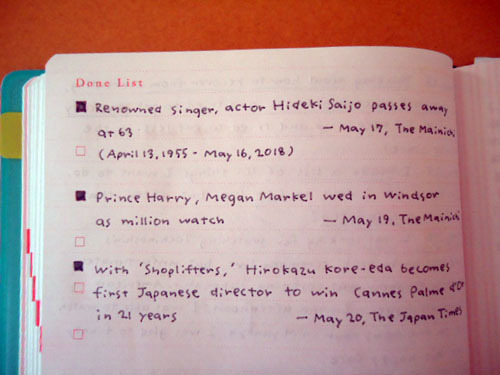 Done List
Renowned singer, actor Hideki Saijo passes away
at 63 — May 17, The Mainichi
(April 13, 1955 - May 16, 2018)
Prince Harry, Megan Markel wed in Windsor
as million watch — May 19, The Mainichi
With 'Shoplifters,' Hirokazu Kore-eda becomes
first Japanese director to win Cannes Palme d'Or
in 21 years — May 20, The Japan Times